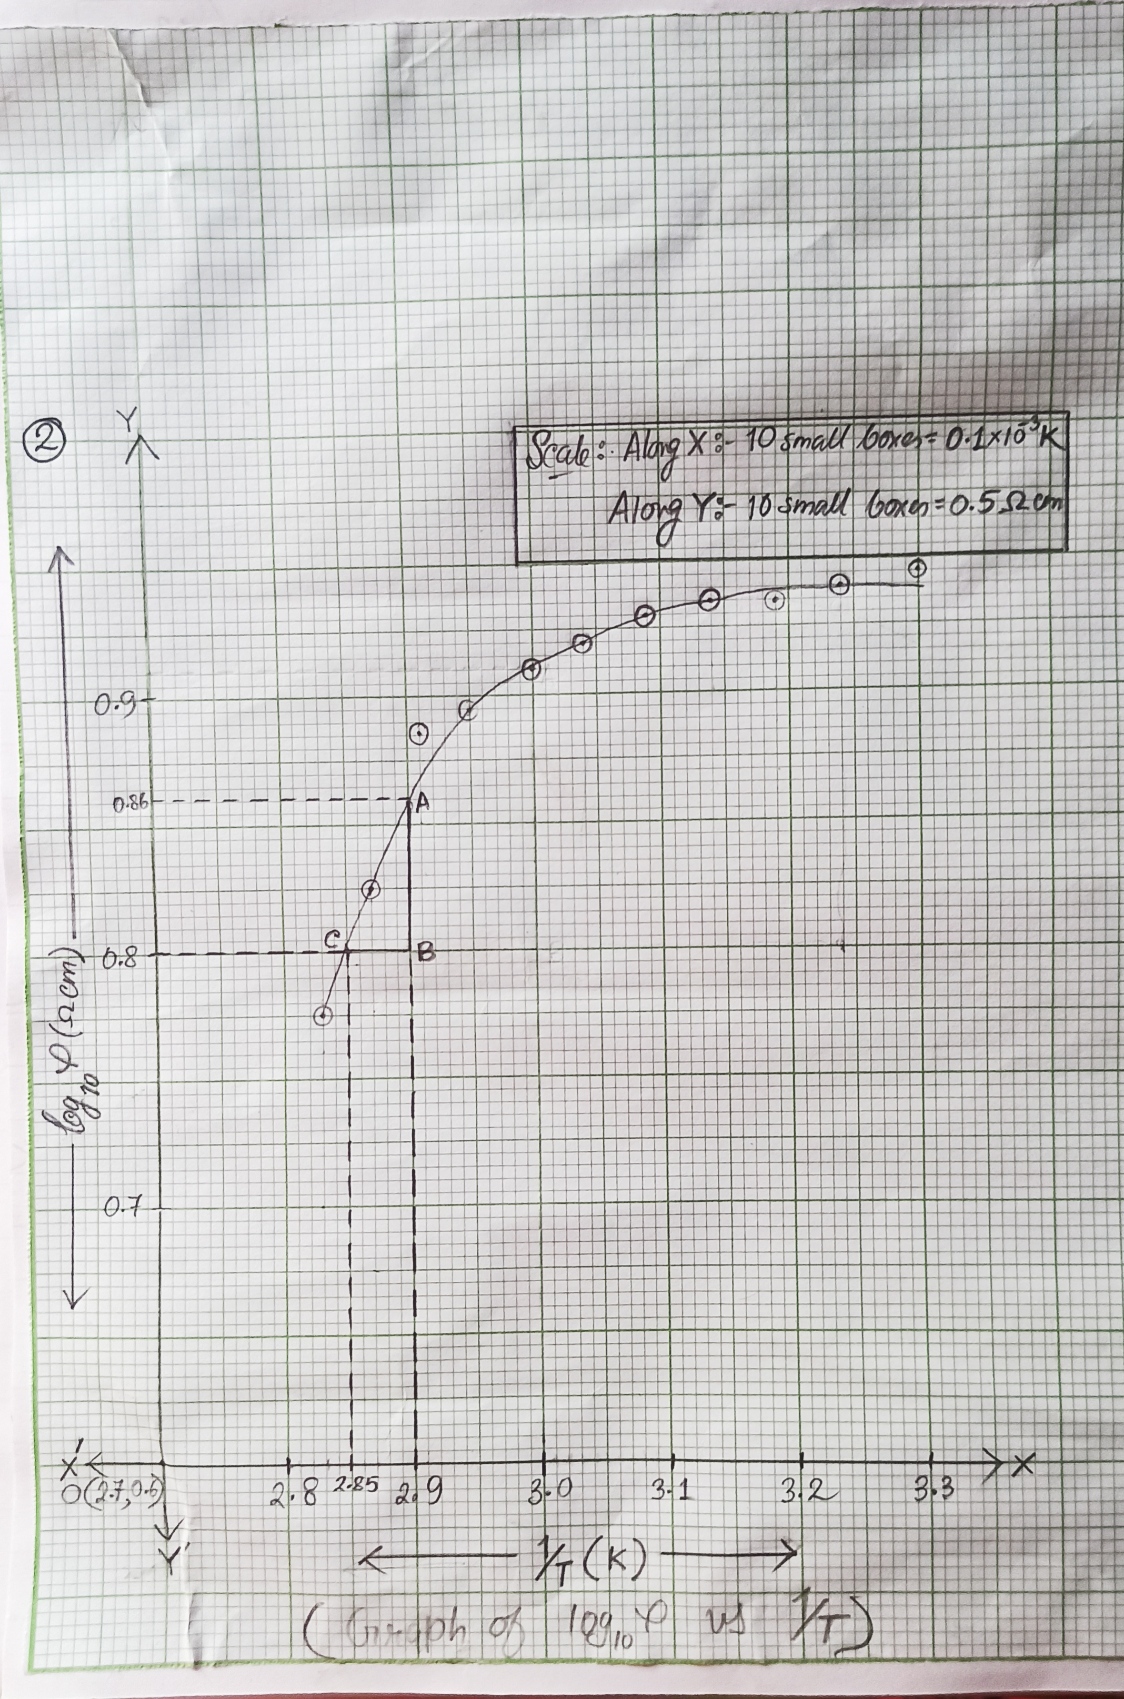 ②
Y
Scale:- Along X:- 10 small boxes = 0.1×10⁻³K
Along Y:- 10 small boxes = 0.5Ωcm
0.9
0.86
A
C
B
0.8
log₁₀ ρ (Ωcm)
0.7
X'
X
O(2.7, 0.6)
2.8
2.85
2.9
3.0
3.1
3.2
3.3
Y'
1/T (K)
(Graph of log₁₀ρ vs 1/T)